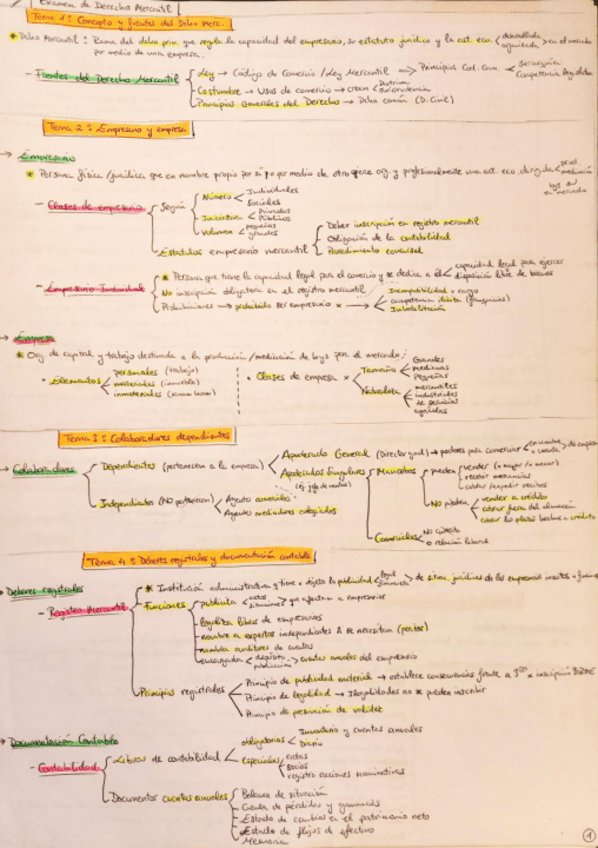 Examen de Derecho Mercantil
Tema 1: Concepto y fuentes del Dcho Merc.
* Dcho Mercantil: Rama del dcho priv. que regula la capacidad del empresario, su estatuto jurídico y la act. eco. < desarrollada organizada > en el mercado
por medio de una empresa.
- Fuentes del Derecho Mercantil
Ley → Código de Comercio / Ley Mercantil → Principios Cod. Com. < Jerarquía
Competencia legislativa
Costumbre → Usos de comercio → crean < Doctrina
Jurisprudencia
Principios Generales del Derecho → Dcho común (D. Civil)
Tema 2: Empresario y empresa
→ Empresario
* Persona física/jurídica que en nombre propio por sí o por medio de otro ejerce org. y profesionalmente una act. eco. dirigida < prod.
mediación
bys en
mercado
- Clases de empresario
Según
Número < Individuales
Sociales
Iniciativa < Privadas
Públicas
Volumen < pequeñas
grandes
Estatutos empresario mercantil
Deber inscripción en registro mercantil
Obligación de la contabilidad
Procedimiento concursal
- Empresario Individual
* Persona que tiene la capacidad legal para el comercio y se dedica a él < capacidad legal para ejercer
disposición libre de bienes
No inscripción obligatoria en el registro mercantil
Prohibiciones → prohibido ser empresario x →
Incompatibilidad x cargo
competencia ilícita
Inhabilitación
→ Empresa
* Org. de capital y trabajo destinada a la producción/mediación de bys para el mercado
• Elementos
personales (trabajo)
materiales (inmueble)
inmateriales
• Clases de empresa x
Tamaño
Grandes
medianas
Pequeñas
Naturaleza
mercantiles
industriales
de servicios
agrícolas
Tema 3: Colaboradores dependientes
→ Colaboradores
Dependientes (pertenecen a la empresa)
Apoderado General (Director gral) → poderes para comerciar < en nombre
x cuenta > de empresa
Apoderados Singulares
(ej. jefe de ventas)
Mancebos
pueden
vender (x mayor / x menor)
recibir mercancías
cobrar/expedir recibos
No pueden
vender a crédito
cobrar fuera del almacén
cobrar los plazos hechos a crédito
Comerciales < No
o relación laboral
Independientes (NO pertenecen)
Agentes comerciales
Agentes mediadores colegiados
Tema 4: Deberes registrales y documentación contable
→ Deberes registrales
- Registro Mercantil
* Institución administrativa q tiene x objeto la publicidad < legal > de situac. jurídicas de los empresarios inscritos
Funciones
publicita < actos
situaciones > que afectan a empresarios
legaliza libros de empresarios
nombra a expertos independientes si se necesitan (peritos)
nombra auditores de cuentas
encargado < depósito
publicación > cuentas anuales del empresario
Principios registrales
Principio de publicidad material → establece consecuencias frente a 3os x inscripción BORME
Principio de legalidad → Ilegalidades no se pueden inscribir
Principio de presunción de validez
→ Documentación Contable
- Contabilidad
Libros de contabilidad
obligatorios < Inventario y cuentas anuales
Diario
especiales
actas
socios
registro acciones nominativas
Documentos cuentas anuales
Balance de situación
Cuenta de pérdidas y ganancias
Estado de cambios en el patrimonio neto
Estado de flujos de efectivo
Memoria
1